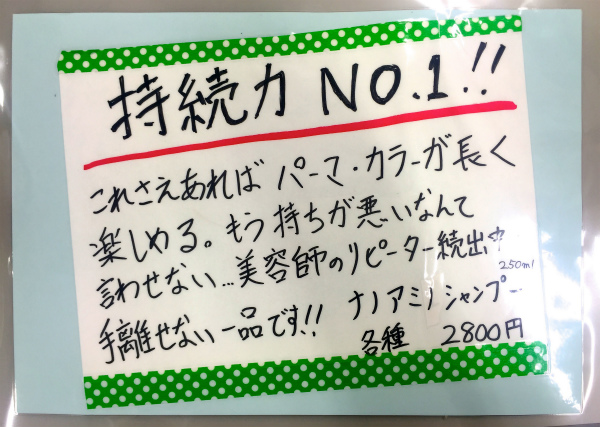 持続力 NO.1!!
これさえあれば パーマ・カラーが長く
楽しめる。もう持ちが悪いなんて
言わせない…美容師のリピーター続出中
250ml
手離せない一品です!! ナノアミノシャンプー
各種 2800円